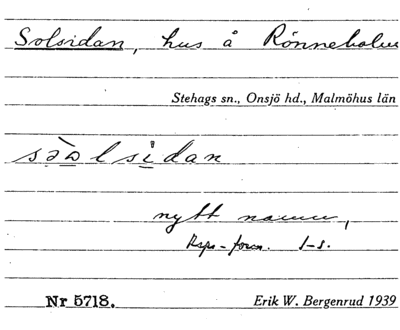 Solsidan, hus å Rönneholm
Stehags sn., Onsjö hd., Malmöhus län
nytt namn,
Rspr-form. 1-s.
Nr 5718. Erik W. Bergenrud 1939